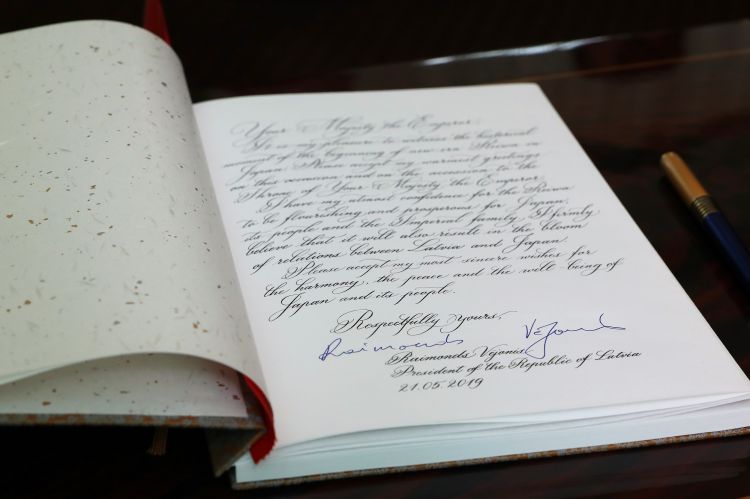 Your Majesty the Emperor,
It is my pleasure to witness the historical
moment of the beginning of new era Reiwa in
Japan. Please accept my warmest greetings
on this occasion and on the accession to the
Throne of Your Majesty the Emperor.
I have my utmost confidence for the Reiwa
to be flourishing and prosperous for Japan,
its people and the Imperial family. I firmly
believe that it will also result in the bloom
of relations between Latvia and Japan.
Please accept my most sincere wishes for
the harmony, the peace and the well-being of
Japan and its people.
Respectfully Yours,
Raimonds Vējonis
Raimonds Vējonis
President of the Republic of Latvia
21.05.2019